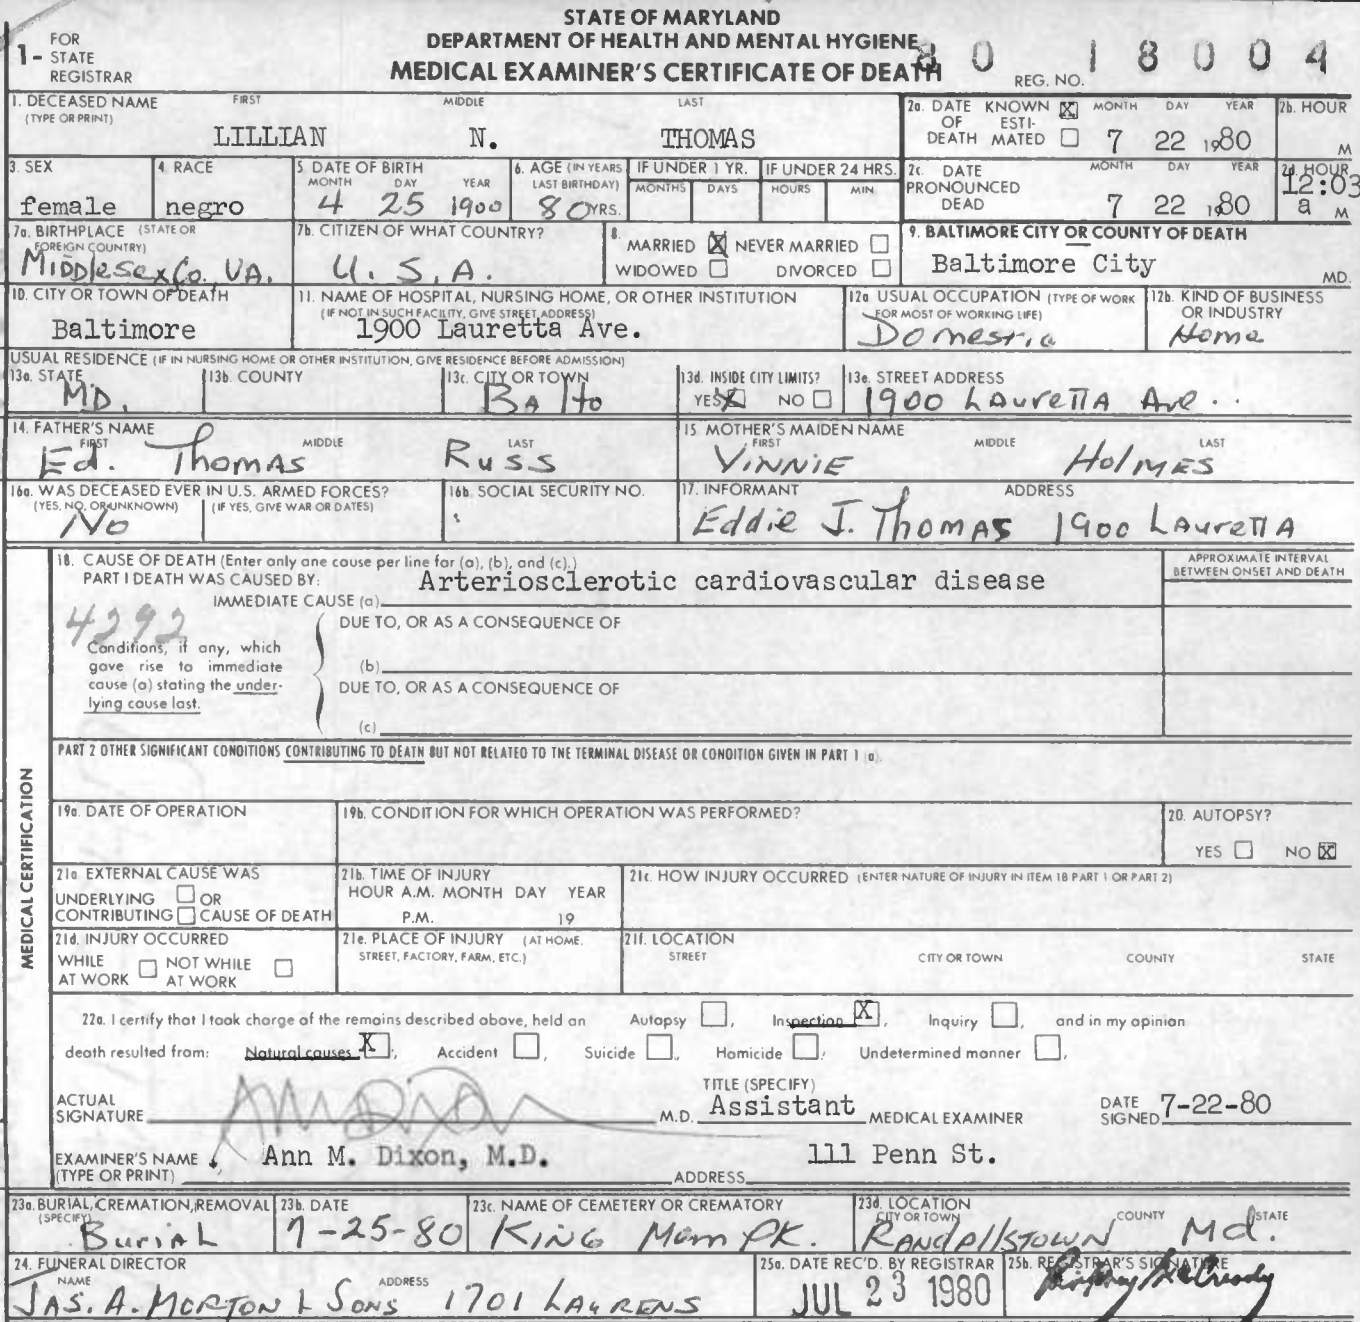 STATE OF MARYLAND
DEPARTMENT OF HEALTH AND MENTAL HYGIENE
MEDICAL EXAMINER'S CERTIFICATE OF DEATH
1- FOR STATE REGISTRAR
REG. NO. 80 18004
1. DECEASED NAME (TYPE OR PRINT) FIRST MIDDLE LAST
LILLIAN N. THOMAS
2a. DATE OF DEATH KNOWN X ESTIMATED MONTH DAY YEAR
7 22 1980
2b. HOUR M
3. SEX
female
4. RACE
negro
5. DATE OF BIRTH MONTH DAY YEAR
4 25 1900
6. AGE (IN YEARS LAST BIRTHDAY)
80 YRS.
IF UNDER 1 YR. MONTHS DAYS
IF UNDER 24 HRS. HOURS MIN
2c. DATE PRONOUNCED DEAD MONTH DAY YEAR
7 22 1980
2d HOUR
12:03 a M
7a. BIRTHPLACE (STATE OR FOREIGN COUNTRY)
Middlesex Co. VA.
7b. CITIZEN OF WHAT COUNTRY?
U.S.A.
8. MARRIED X NEVER MARRIED
WIDOWED DIVORCED
9. BALTIMORE CITY OR COUNTY OF DEATH
Baltimore City MD.
10. CITY OR TOWN OF DEATH
Baltimore
11. NAME OF HOSPITAL, NURSING HOME, OR OTHER INSTITUTION
(IF NOT IN SUCH FACILITY, GIVE STREET ADDRESS)
1900 Lauretta Ave.
12a USUAL OCCUPATION (TYPE OF WORK FOR MOST OF WORKING LIFE)
Domestic
12b. KIND OF BUSINESS OR INDUSTRY
Home
USUAL RESIDENCE (IF IN NURSING HOME OR OTHER INSTITUTION, GIVE RESIDENCE BEFORE ADMISSION)
13a. STATE
MD.
13b. COUNTY
13c. CITY OR TOWN
Balto
13d. INSIDE CITY LIMITS?
YES X NO
13e. STREET ADDRESS
1900 Lauretta Ave..
14. FATHER'S NAME FIRST MIDDLE LAST
Ed. Thomas Russ
15 MOTHER'S MAIDEN NAME FIRST MIDDLE LAST
Vinnie Holmes
16a. WAS DECEASED EVER IN U.S. ARMED FORCES?
(YES, NO, OR UNKNOWN) (IF YES, GIVE WAR OR DATES)
No
16b. SOCIAL SECURITY NO.
17. INFORMANT ADDRESS
Eddie J. Thomas 1900 Lauretta
MEDICAL CERTIFICATION
18. CAUSE OF DEATH (Enter only one cause per line for (a), (b), and (c).)
PART I DEATH WAS CAUSED BY:
IMMEDIATE CAUSE (a) Arteriosclerotic cardiovascular disease
APPROXIMATE INTERVAL BETWEEN ONSET AND DEATH
4292
DUE TO, OR AS A CONSEQUENCE OF
Conditions, if any, which gave rise to immediate cause (a) stating the underlying cause last.
(b)
DUE TO, OR AS A CONSEQUENCE OF
(c)
PART 2 OTHER SIGNIFICANT CONDITIONS CONTRIBUTING TO DEATH BUT NOT RELATED TO THE TERMINAL DISEASE OR CONDITION GIVEN IN PART 1 (a).
19a. DATE OF OPERATION
19b. CONDITION FOR WHICH OPERATION WAS PERFORMED?
20. AUTOPSY?
YES NO X
21a EXTERNAL CAUSE WAS
UNDERLYING OR
CONTRIBUTING CAUSE OF DEATH
21b. TIME OF INJURY
HOUR A.M. MONTH DAY YEAR
P.M. 19
21c. HOW INJURY OCCURRED (ENTER NATURE OF INJURY IN ITEM 18 PART 1 OR PART 2)
21d. INJURY OCCURRED
WHILE AT WORK NOT WHILE AT WORK
21e. PLACE OF INJURY (AT HOME, STREET, FACTORY, FARM, ETC.)
21f. LOCATION
STREET CITY OR TOWN COUNTY STATE
22a. I certify that I took charge of the remains described above, held an Autopsy , Inspection X , Inquiry , and in my opinion
death resulted from: Natural causes X , Accident , Suicide , Homicide , Undetermined manner ,
ACTUAL SIGNATURE AMDixon M.D.
TITLE (SPECIFY)
Assistant MEDICAL EXAMINER
DATE SIGNED 7-22-80
EXAMINER'S NAME (TYPE OR PRINT) Ann M. Dixon, M.D.
ADDRESS 111 Penn St.
23a. BURIAL, CREMATION, REMOVAL (SPECIFY)
Burial
23b. DATE
7-25-80
23c. NAME OF CEMETERY OR CREMATORY
King Mem Pk.
23d. LOCATION CITY OR TOWN COUNTY STATE
Randallstown Md.
24. FUNERAL DIRECTOR
NAME ADDRESS
Jas. A. Morton & Sons 1701 Laurens
25a. DATE REC'D. BY REGISTRAR
JUL 23 1980
25b. REGISTRAR'S SIGNATURE